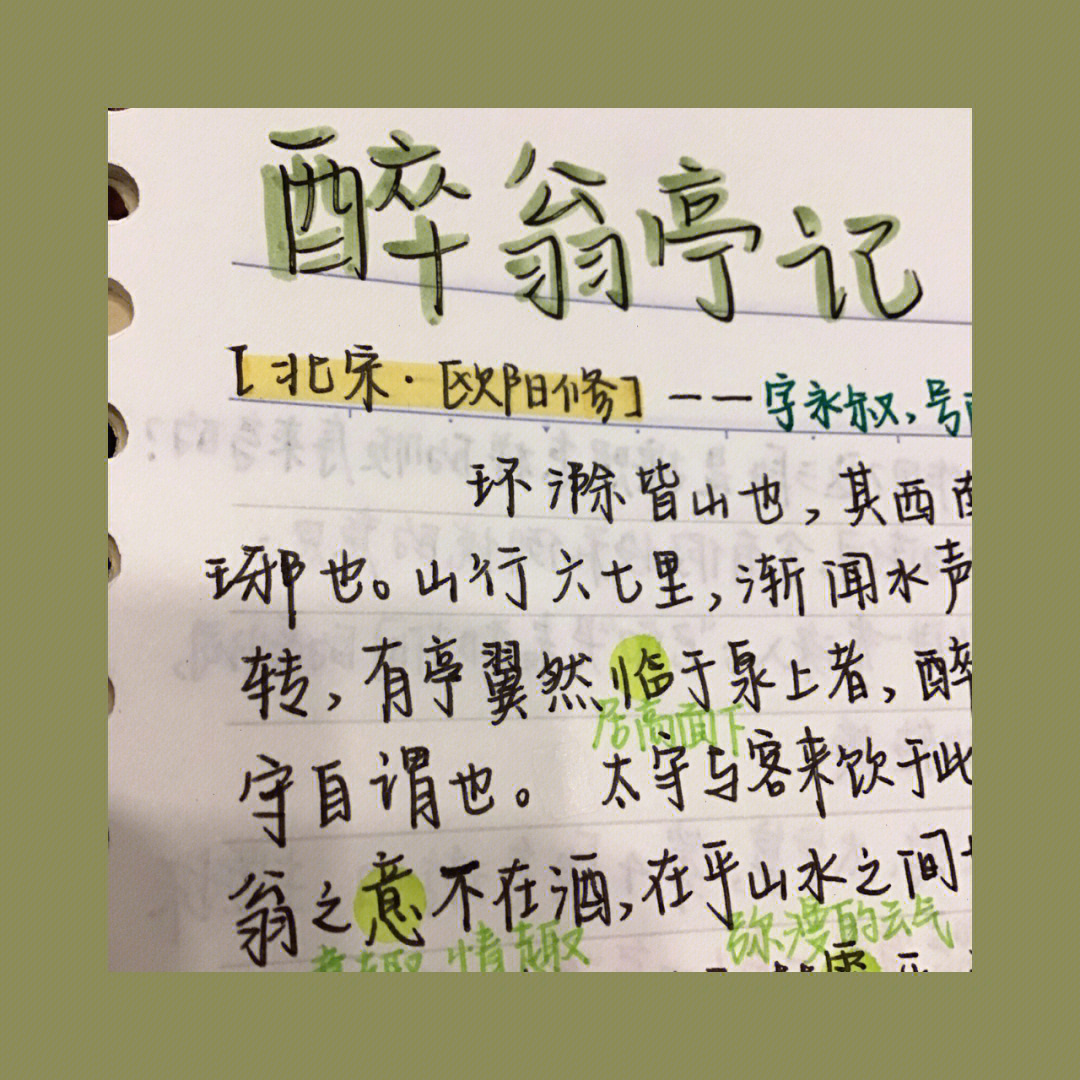 醉翁亭记
[北宋·欧阳修] ——字永叔,号
环滁皆山也,其西南
琊也。山行六七里,渐闻水声
转,有亭翼然临于泉上者,醉
居高面下
守自谓也。 太守与客来饮于此
翁之意不在酒,在乎山水之间
意趣 情趣
弥漫的云气